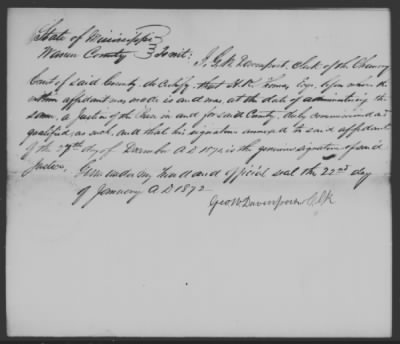 State of Mississippi
Warren County } To wit: I, G.W. Davenport, Clerk of the Chancery
Court of Said County, do Certify, that H.R. Esqr. before whom the
within affidavit was made is and was at the date of administering the
same, a Justice of the Peace in and for said County, duly commissioned and
qualified as such, and that his signature annexed to said affidavit
of the 27th day of December A.D. 1871, is the genuine signature of said
Justice. Given under my hand and official seal this 22nd day
of January A.D 1872
Geo W Davenport Clk